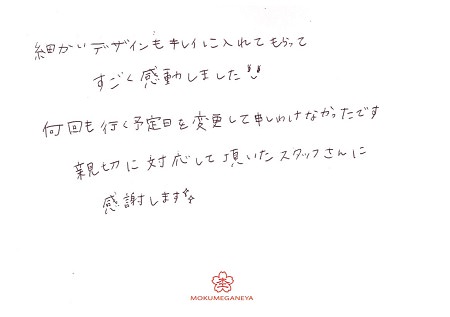 細かいデザインもキレイに入れてもらって
すごく感動しました
何回も行く予定日を変更して申しわけなかったです
親切に対応して頂いたスタッフさんに
感謝します
MOKUMEGANEYA